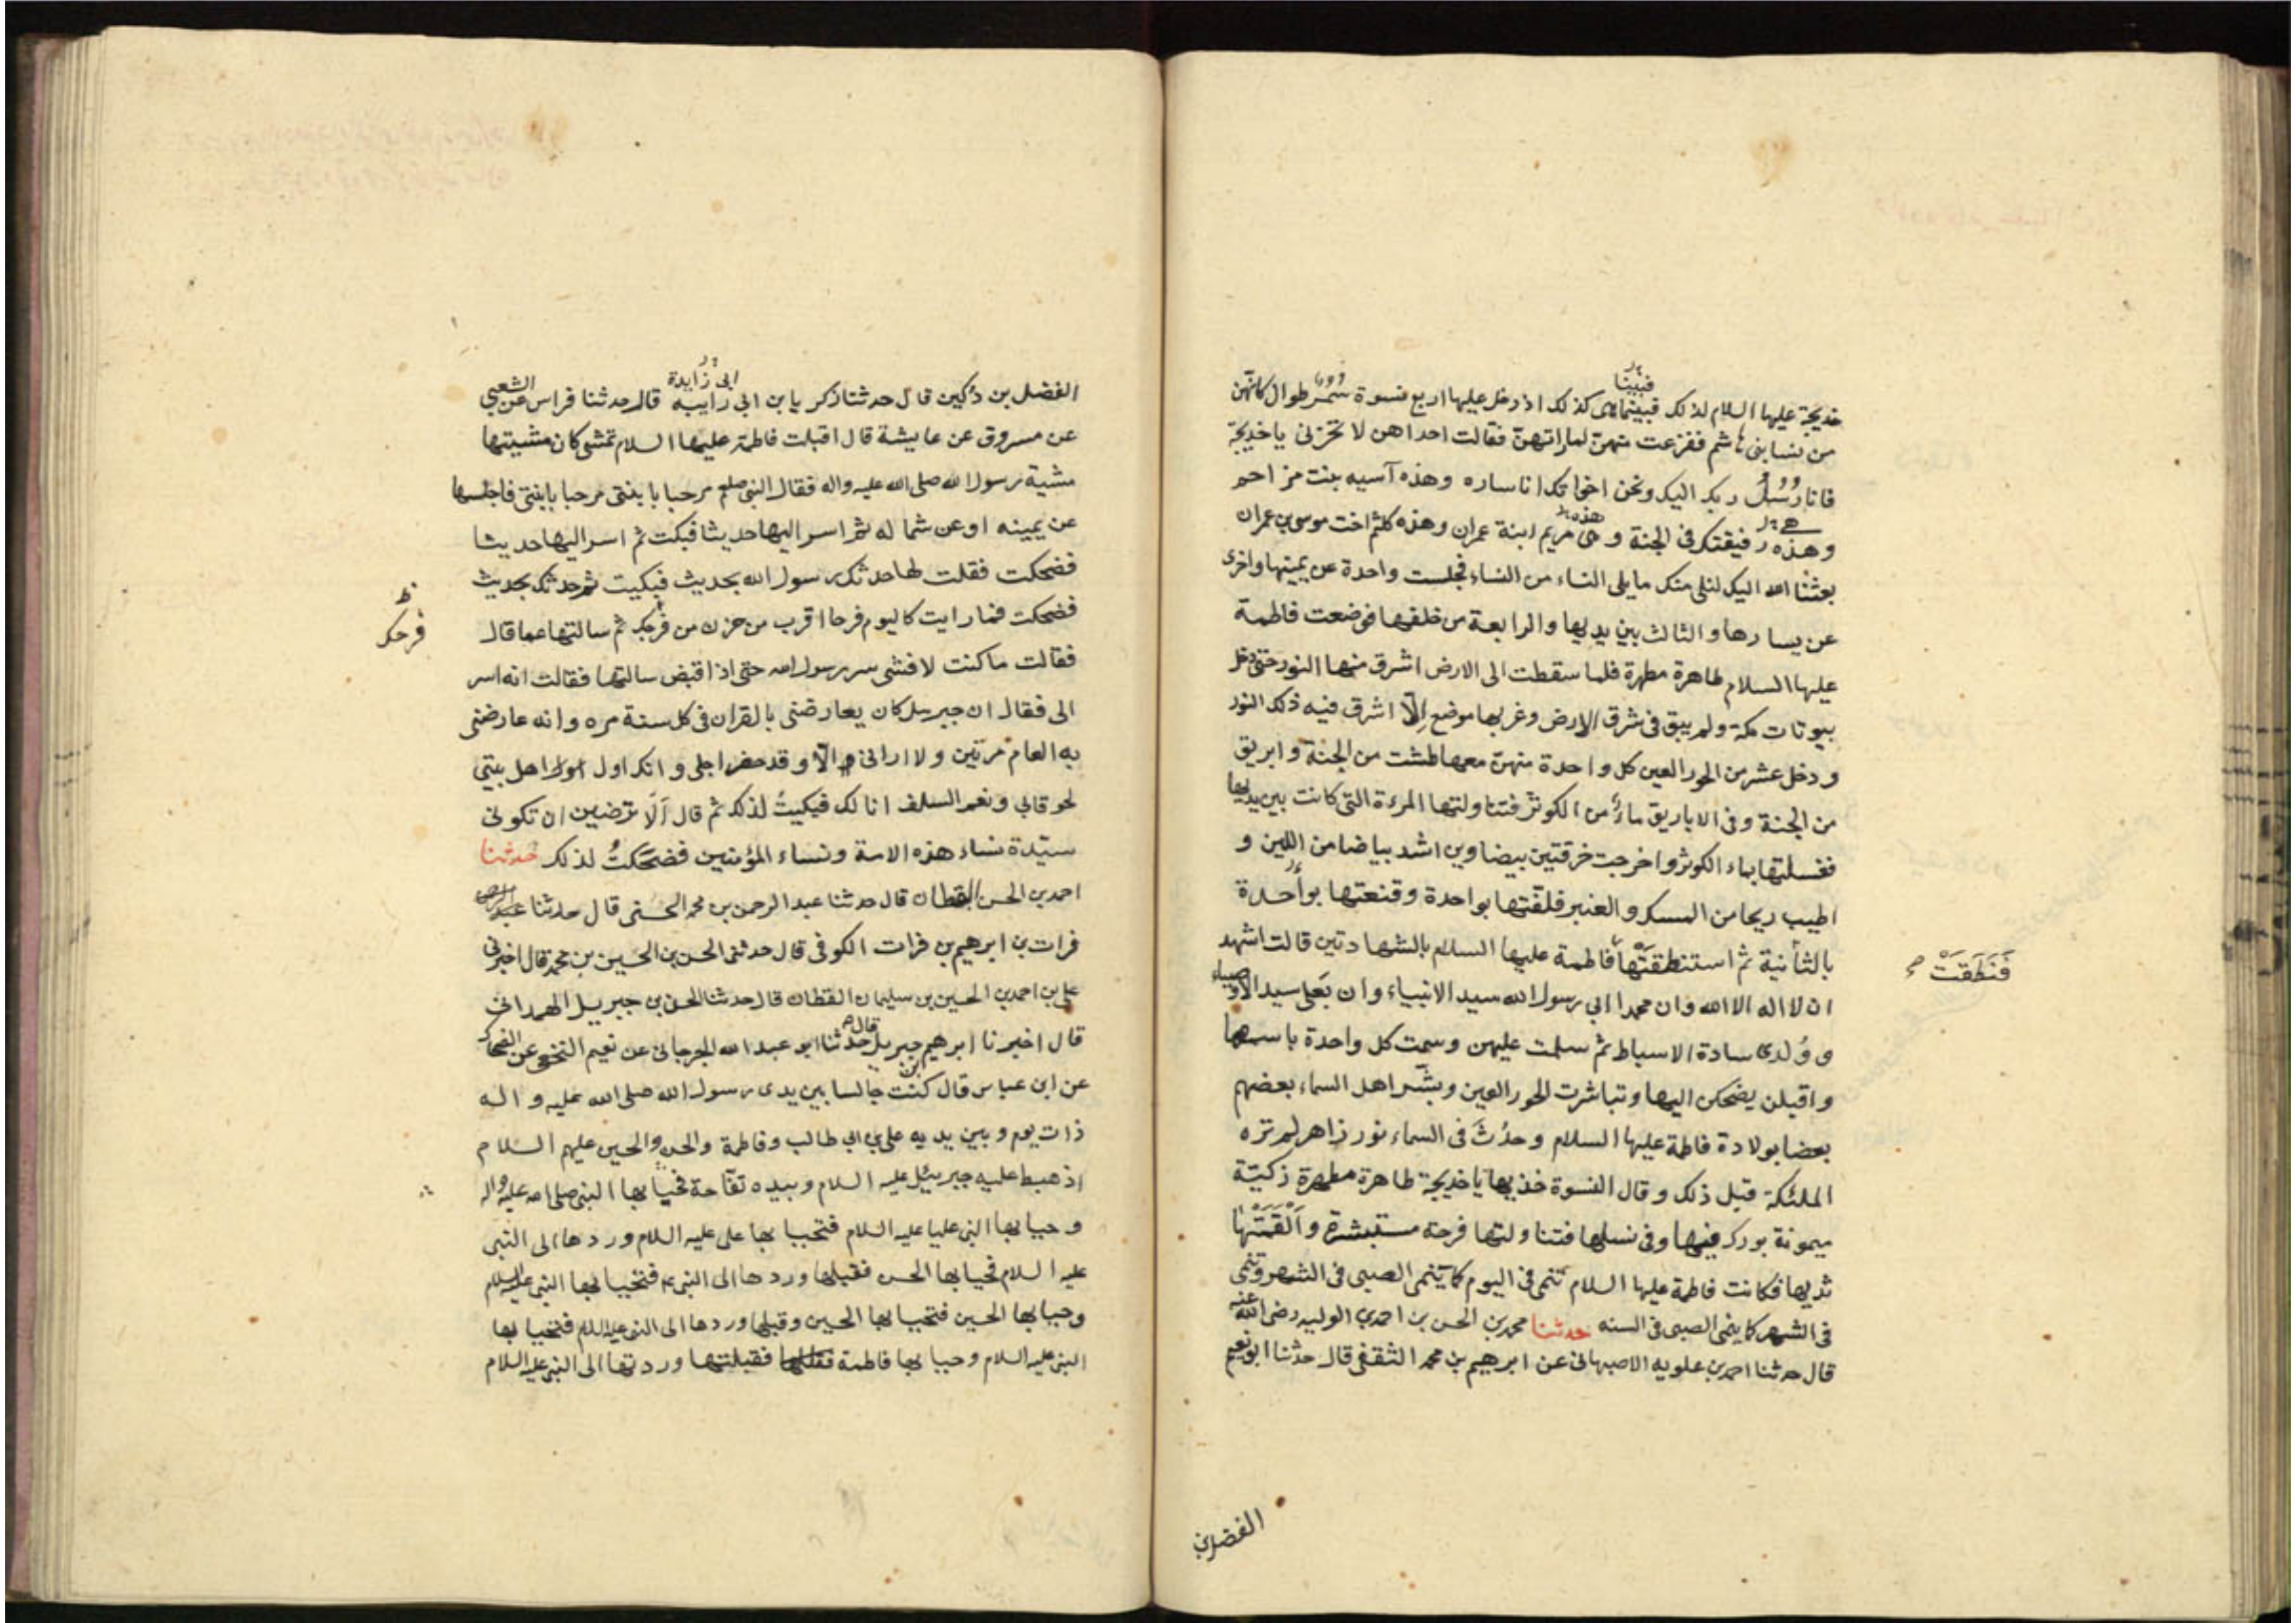 فبينا
خديجة عليها السلام لذلك فبينما هى كذلك اذ دخل عليها اربع نسوة سمر طوال كانهن
من نسا بنى هاشم ففزعت منهن لما راتهن فقالت احداهن لا تحزنى يا خديجة
فانا رُسُلُ ربك اليك ونحن اخواتك انا ساره وهذه آسيه بنت مزاحم
وهذه رفيقتك فى الجنة و هى مريم ابنة عمران وهذه كلثم اخت موسى بن عمران
بعثنا الله اليك لنلى منك ما يلى النساء من النساء فجلست واحدة عن يمينها واخرى
عن يسارها والثالث بين يديها والرابعة من خلفها فوضعت فاطمة
عليها السلام طاهرة مطهرة فلما سقطت الى الارض اشرق منها النور حتى دخل
بيوتات مكة ولم يبق فى شرق الارض وغربها موضع اِلّا اشرق فيه ذلك النور
ودخل عشر من الحور العين كل واحدة منهنّ معها طشت من الجنة وابريق
من الجنة وفى الاباريق ماء من الكوثر فتناولتها المرءة التى كانت بين يديها
فغسلتها بماء الكوثر واخرجت خرقتين بيضاوين اشد بياضا من اللبن و
اطيب ريحا من المسك والعنبر فلفّتها بواحدة وقنعتها بواحدة
بالثانية ثم استنطقتها فاطمة عليها السلام بالشهادتين قالت اشهد
فَنَطَقَتْ
ان لا اله الا الله وان محمدا ابى رسول الله سيد الانبياء وان بَعْلى سيد الاوصياء
و وُلدى سادة الاسباط ثم سلمت عليهن وسمت كل واحدة باسمها
واقبلن يضحكن اليها وتباشرت الحور العين وبشّر اهل السماء بعضهم
بعضا بولادة فاطمة عليها السلام وحدَثَ فى السماء نور زاهر لم تره
الملئكة قبل ذلك وقال النسوة خذيها يا خديجة طاهرة مطهرة زكيّة
ميمونة بورك فيها وفى نسلها فتناولتها فرحة مستبشرة واَلْقَمَتْها
ثديها فكانت فاطمة عليها السلام تنمى فى اليوم كما ينمى الصبى فى الشهر وتنمى
فى الشهر كما ينمى الصبى فى السنه حدثنا محمد بن الحسن بن احمد بن الوليد رضى الله عنه
قال حدثنا احمد بن علويه الاصبهانى عن ابرهيم بن محمد الثقفى قال حدثنا ابو نعيم
الفضل بن
ابى زايدة
الفضل بن دُكين قال حدثنا زكريا بن ابى زايبه قال حدثنا فراس عن الشعبي
عن مسروق عن عايشة قال اقبلت فاطمة عليها السلام تمشى كان مشيتها
مشية رسول الله صلى الله عليه واله فقال النبى صلعم مرحبا بابنتى مرحبا بابنتى فاجلسها
عن يمينه او عن شماله ثم اسر اليها حديثا فبكت ثم اسر اليها حديثا
فضحكت فقلت لها حدثك رسول الله بحديث فبكيت ثم حدثك بحديث
فضحكت فما رايت كاليوم فرحا اقرب من حزن من فرحك ثم سالتها عما قال
فرحك
فقالت ما كنت لافشى سر رسول الله حتى اذا قبض سالتها فقالت انه اسر
الى فقال ان جبريل كان يعارضنى بالقران فى كل سنة مره وانه عارضنى
به العام مرتين ولا ارانى الّا وقد حضر اجلى وانك اول اهل بيتي
لحوقا بي ونعم السلف انا لك فبكيتُ لذلك ثم قال اَلَا ترضين ان تكونى
سيّدة نساء هذه الامة ونساء المؤمنين فضحكتُ لذلك حدثنا
احمد بن الحسن القطان قال حدثنا عبد الرحمن بن محمد الحسنى قال حدثنا
فرات بن ابرهيم بن فرات الكوفى قال حدثنى الحسن بن الحسين بن محمد قال اخبرنى
على بن احمد بن الحسين بن سليمان القطان قال حدثنا الحسن بن جبريل الهمدانى
قال اخبرنا ابرهيم بن جبريل قال حدثنا ابو عبد الله الجرجانى عن نعيم النخعى عن الضحاك
عن ابن عباس قال كنت جالسا بين يدى رسول الله صلى الله عليه واله
ذات يوم وبين يديه على بن ابى طالب وفاطمة والحسن والحسين عليهم السلام
اذ هبط عليه جبرييل عليه السلام وبيده تفاحة فحيا بها النبى صلى الله عليه واله
وحيا بها النبى عليا عليه السلام فتحيا بها على عليه السلام وردها الى النبى
عليه السلام فحيا بها الحسن فقبلها وردها الى النبى ع فتحيا بها النبى عليه السلام
وحيا بها الحسين فتحيا بها الحسين وقبلها وردها الى النبى عليه السلام فتحيا بها
النبى عليه السلام وحيا بها فاطمة فقبلتها وردتها الى النبى عليه السلام